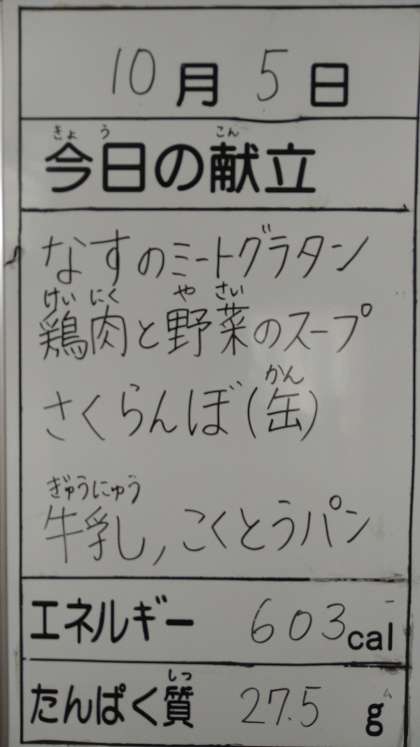 10月5日
きょう こん
今日の献立
なすのミートグラタン
けいにく やさい
鶏肉と野菜のスープ
かん
さくらんぼ(缶)
ぎゅうにゅう
牛乳,こくとうパン
エネルギー 603cal
しつ
たんぱく質 27.5g